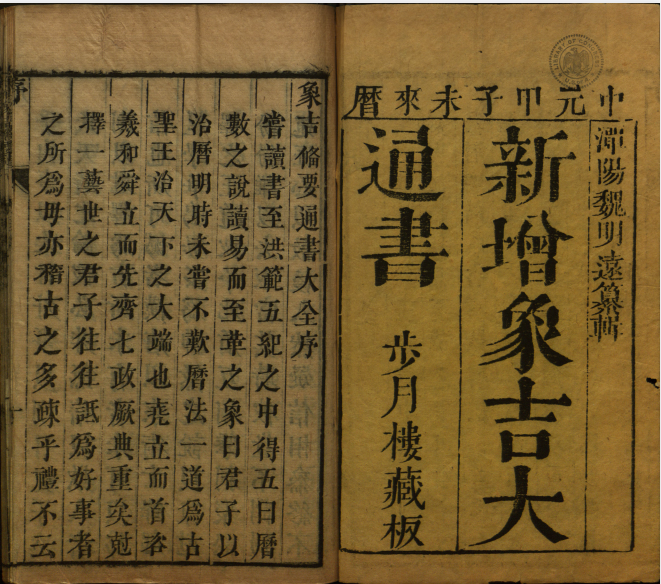 中元甲子未來曆
潭陽魏明遠纂輯
新增象吉大
通書
步月樓藏板
象吉俻要通書大全序
嘗讀書至洪範五紀之中得五曰曆
數之說讀易而至革之象曰君子以
治曆明時未嘗不歎曆法一道為古
聖王治天下之大端也堯立而首咨
羲和舜立而先齊七政厥典重矣尅
擇一藝世之君子往往詆為好事者
之所為毋亦稽古之多疎乎禮不云
序